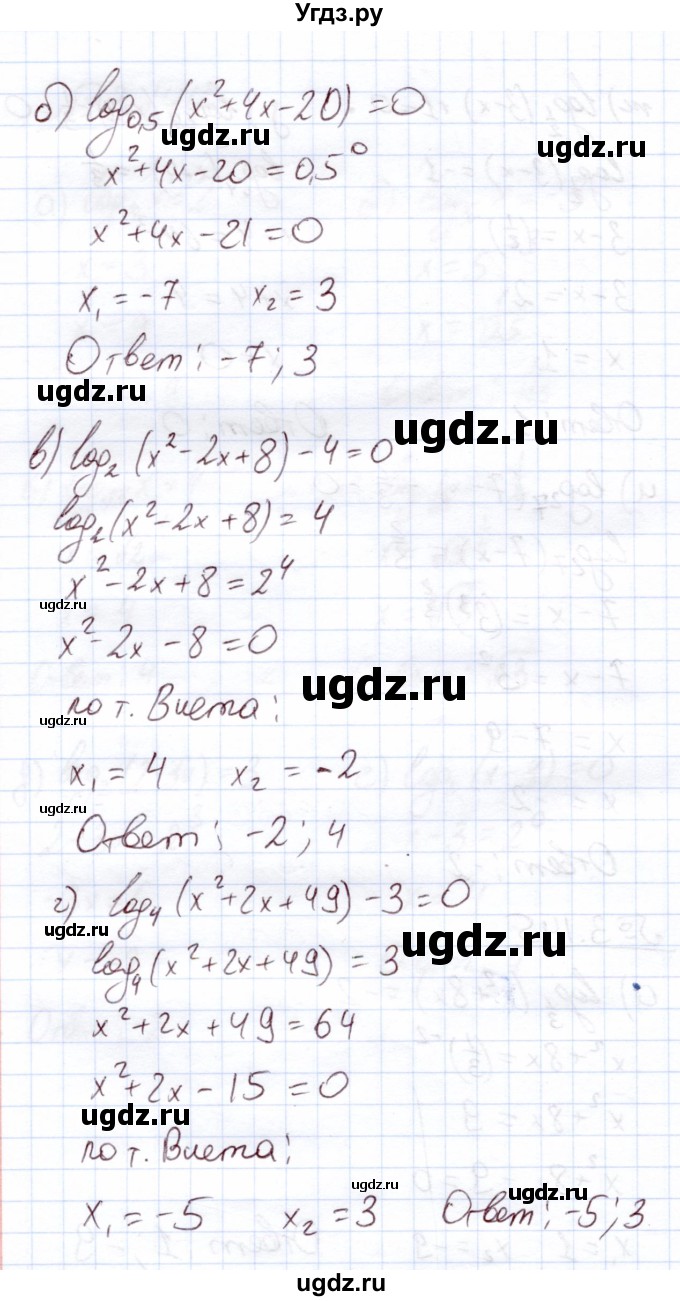 Угдз.ру
б) log₀,₅ (x²+4x-20) = 0
ugdz.ru
ugdz.ru
x²+4x-20 = 0,5⁰
x²+4x-21 = 0
x₁ = -7 x₂ = 3
Ответ: -7; 3
ugdz.ru
ugdz.ru
в) log₂ (x²-2x+8) - 4 = 0
log₂ (x²-2x+8) = 4
x²-2x+8 = 2⁴
ugdz.ru
x²-2x-8 = 0
ugdz.ru
по т. Виета:
ugdz.ru
x₁ = 4 x₂ = -2
ugdz.ru
Ответ: -2; 4
г) log₄ (x²+2x+49) - 3 = 0
ugdz.ru
ugdz.ru
log₄ (x²+2x+49) = 3
x²+2x+49 = 64
x²+2x-15 = 0
ugdz.ru
по т. Виета:
ugdz.ru
ugdz.ru
x₁ = -5 x₂ = 3 Ответ: -5; 3
ugdz.ru